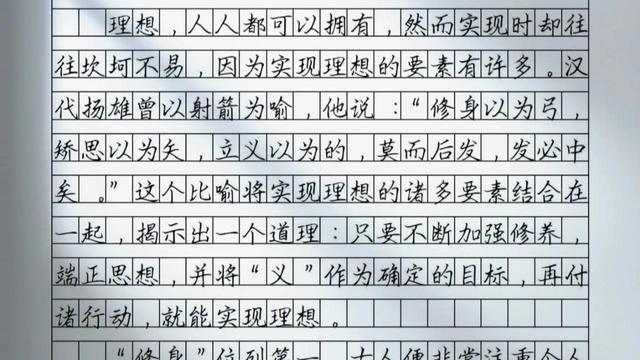 理想，人人都可以拥有，然而实现时却往
往坎坷不易，因为实现理想的要素有许多。汉
代扬雄曾以射箭为喻，他说：“修身以为弓，
矫思以为矢，立义以为的，莫而后发，发必中
矣。”这个比喻将实现理想的诸多要素结合在
一起，揭示出一个道理：只要不断加强修养，
端正思想，并将“义”作为确定的目标，再付
诸行动，就能实现理想。
“修身”位列第一，古人便非常注重个人